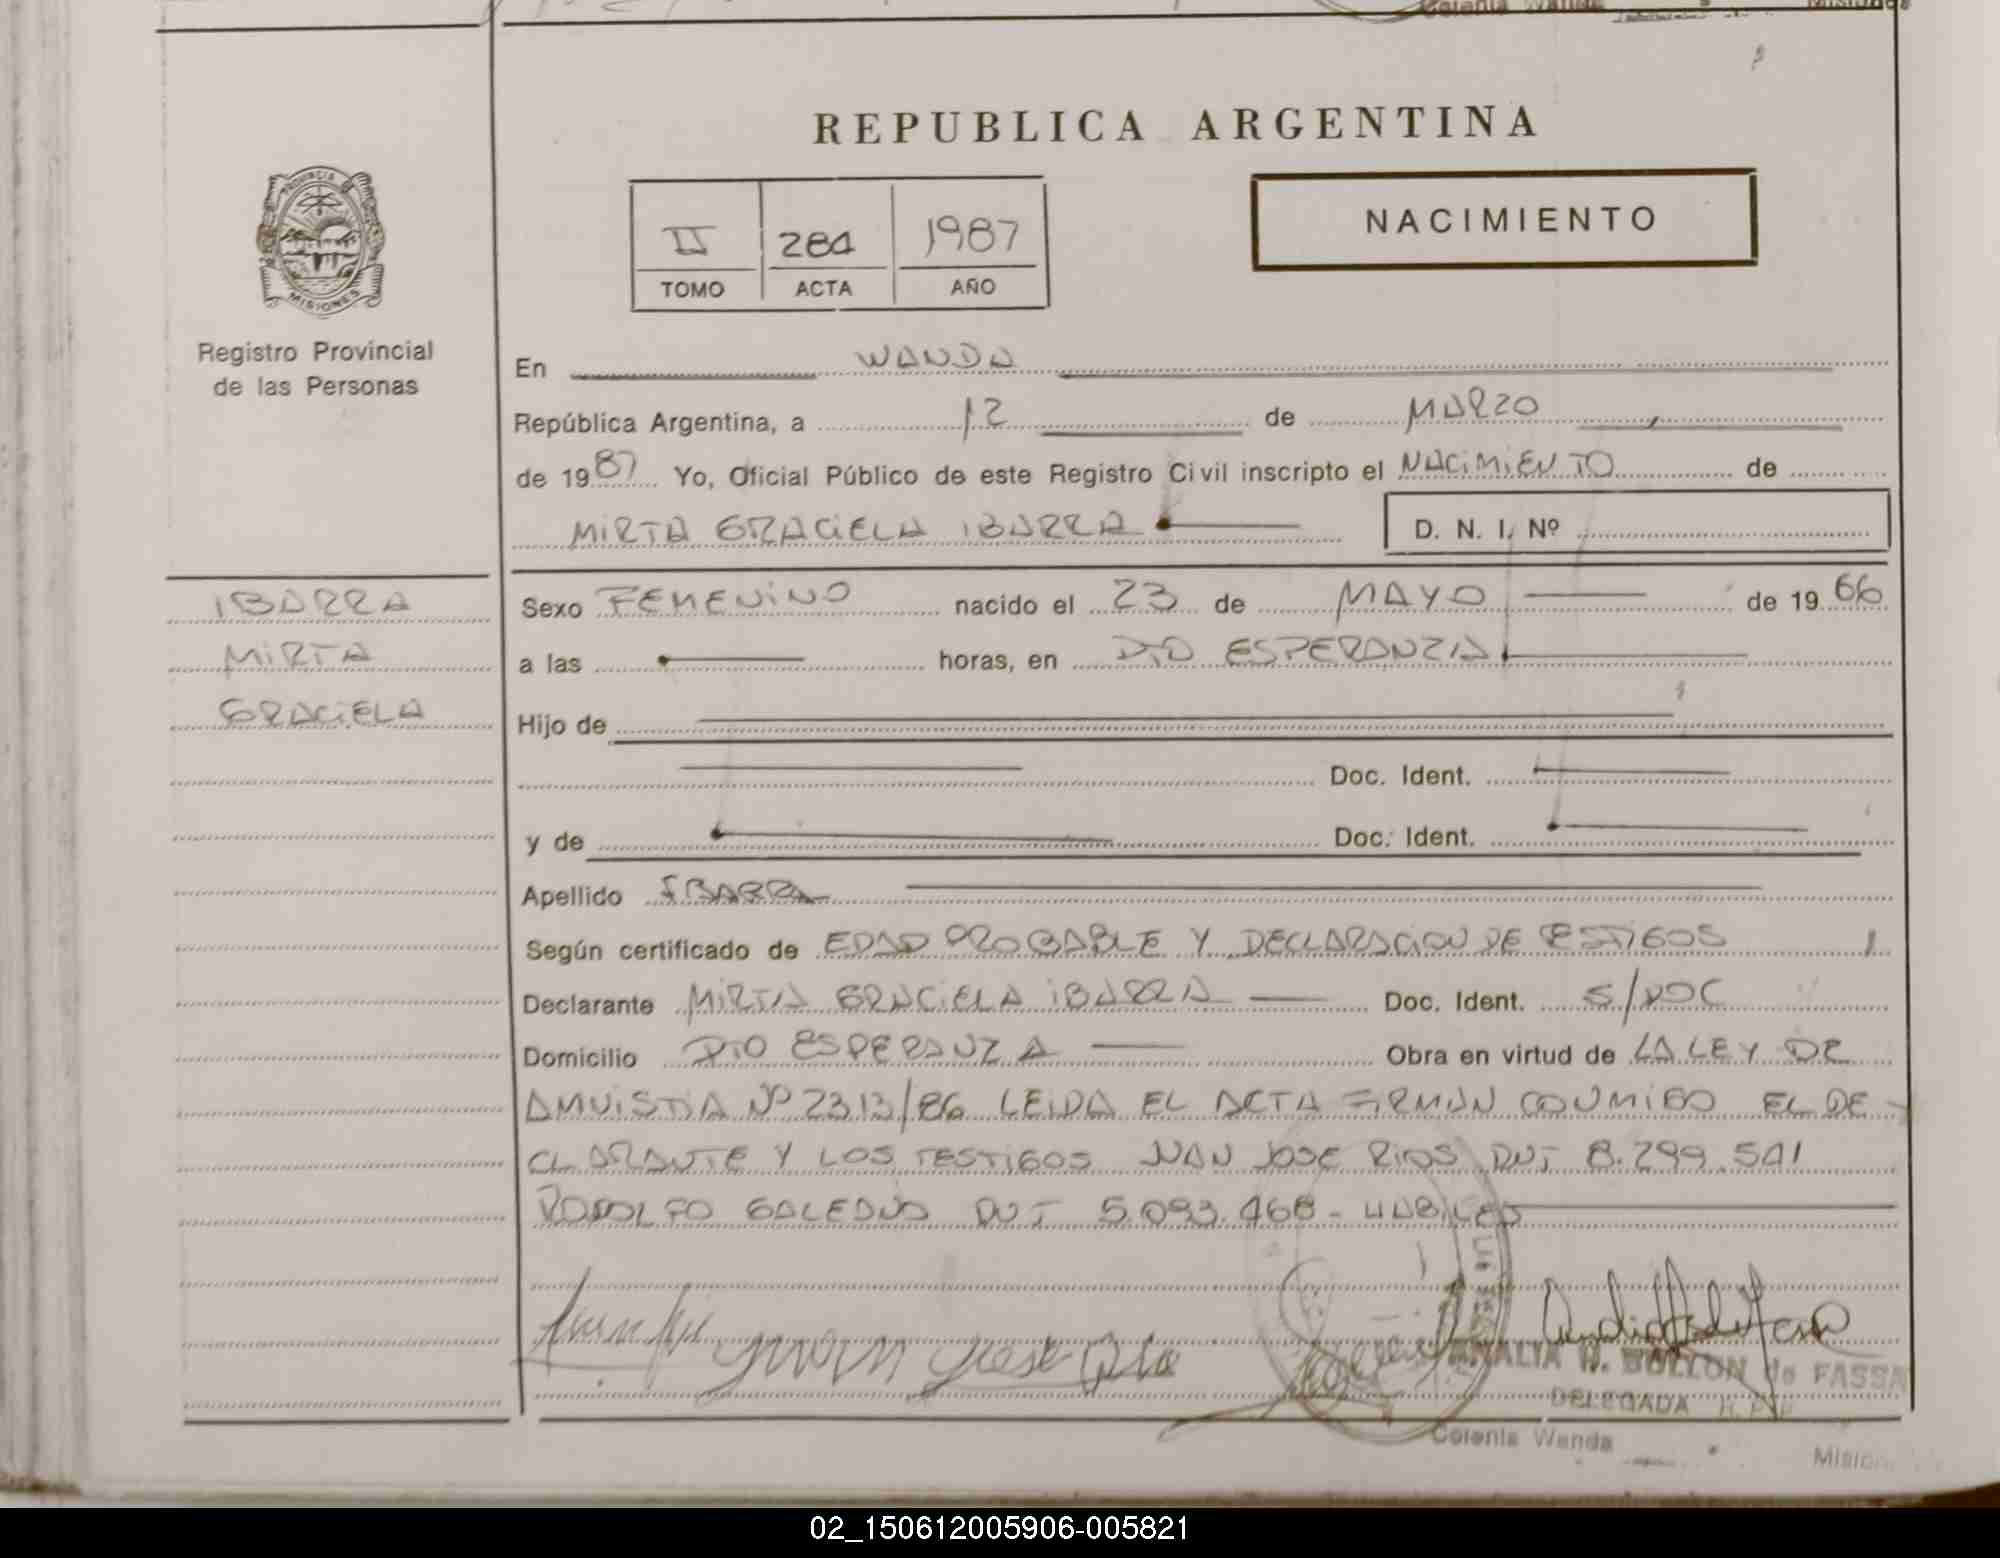 REPUBLICA ARGENTINA
PROVINCIA
MISIONES
II 284 1987
TOMO ACTA AÑO
NACIMIENTO
Registro Provincial
de las Personas
En WANDA
República Argentina, a 12 de MARZO
de 1987 Yo, Oficial Público de este Registro Civil inscripto el NACIMIENTO de
MIRTA GRACIELA IBARRA D. N. I. Nº
IBARRA
MIRTA
GRACIELA
Sexo FEMENINO nacido el 23 de MAYO de 1966
a las horas, en PTO ESPERANZA
Hijo de
Doc. Ident.
y de Doc. Ident.
Apellido IBARRA
Según certificado de EDAD PROBABLE Y DECLARACION DE TESTIGOS
Declarante MIRTA GRACIELA IBARRA Doc. Ident. S/DOC
Domicilio PTO ESPERANZA Obra en virtud de LA LEY DE
AMNISTIA Nº 2313/86 LEIDA EL ACTA FIRMAN CONMIGO EL DE-
CLARANTE Y LOS TESTIGOS JUAN JOSE RIOS DNI 8.299.541
RODOLFO GALEANO DNI 5.093.468 - HABILES
Juan Jose
DELEGADA
Colonia Wanda
02_150612005906-005821